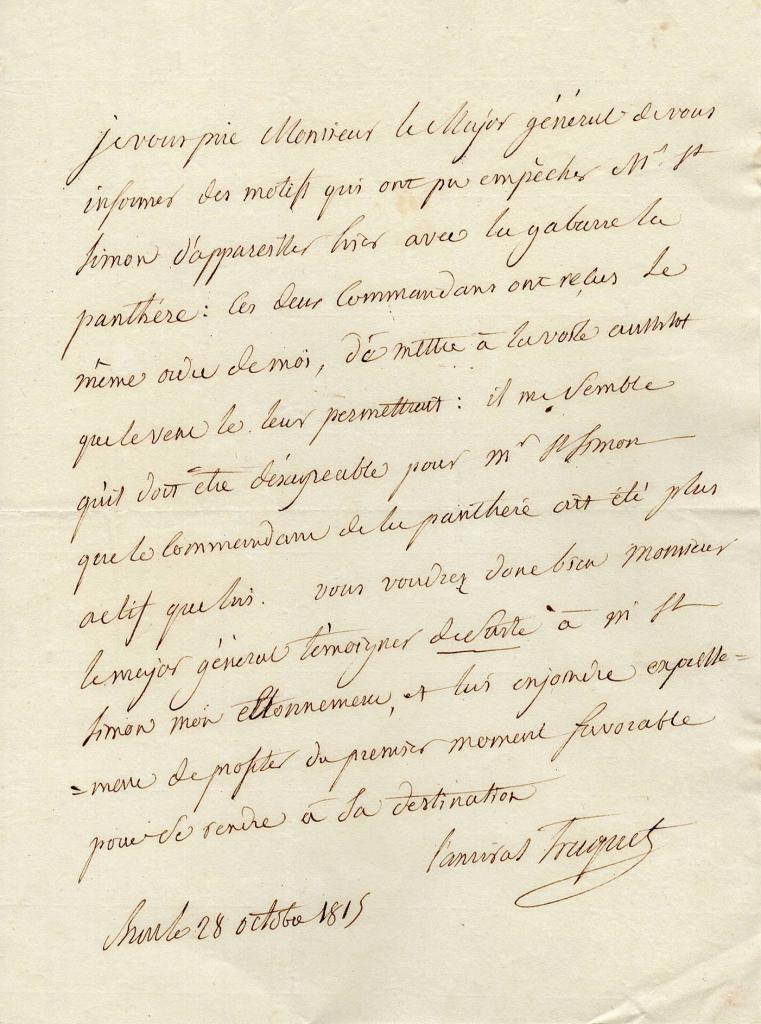 je vous prie Monsieur le Major général de vous
informer des motifs qui ont pu empêcher Mr. St
Simon d'appareiller hier avec la gabarre la
panthère : ces deux Commandans ont reçus le
même ordre de moi, de mettre à la voile aussitot
que le vent le leur permettrait : il me semble
qu'il doit être désagreable pour mr St Simon
que le Commandant de la panthère ait été plus
actif que lui. vous voudrez donc bien monsieur
le major général témoigner de suite à mr St
Simon mon ettonnement, et lui enjoindre expresse=
=ment de profiter du premier moment favorable
pour se rendre à sa destination
l'amiral Truguet
le 28 octobre 1815